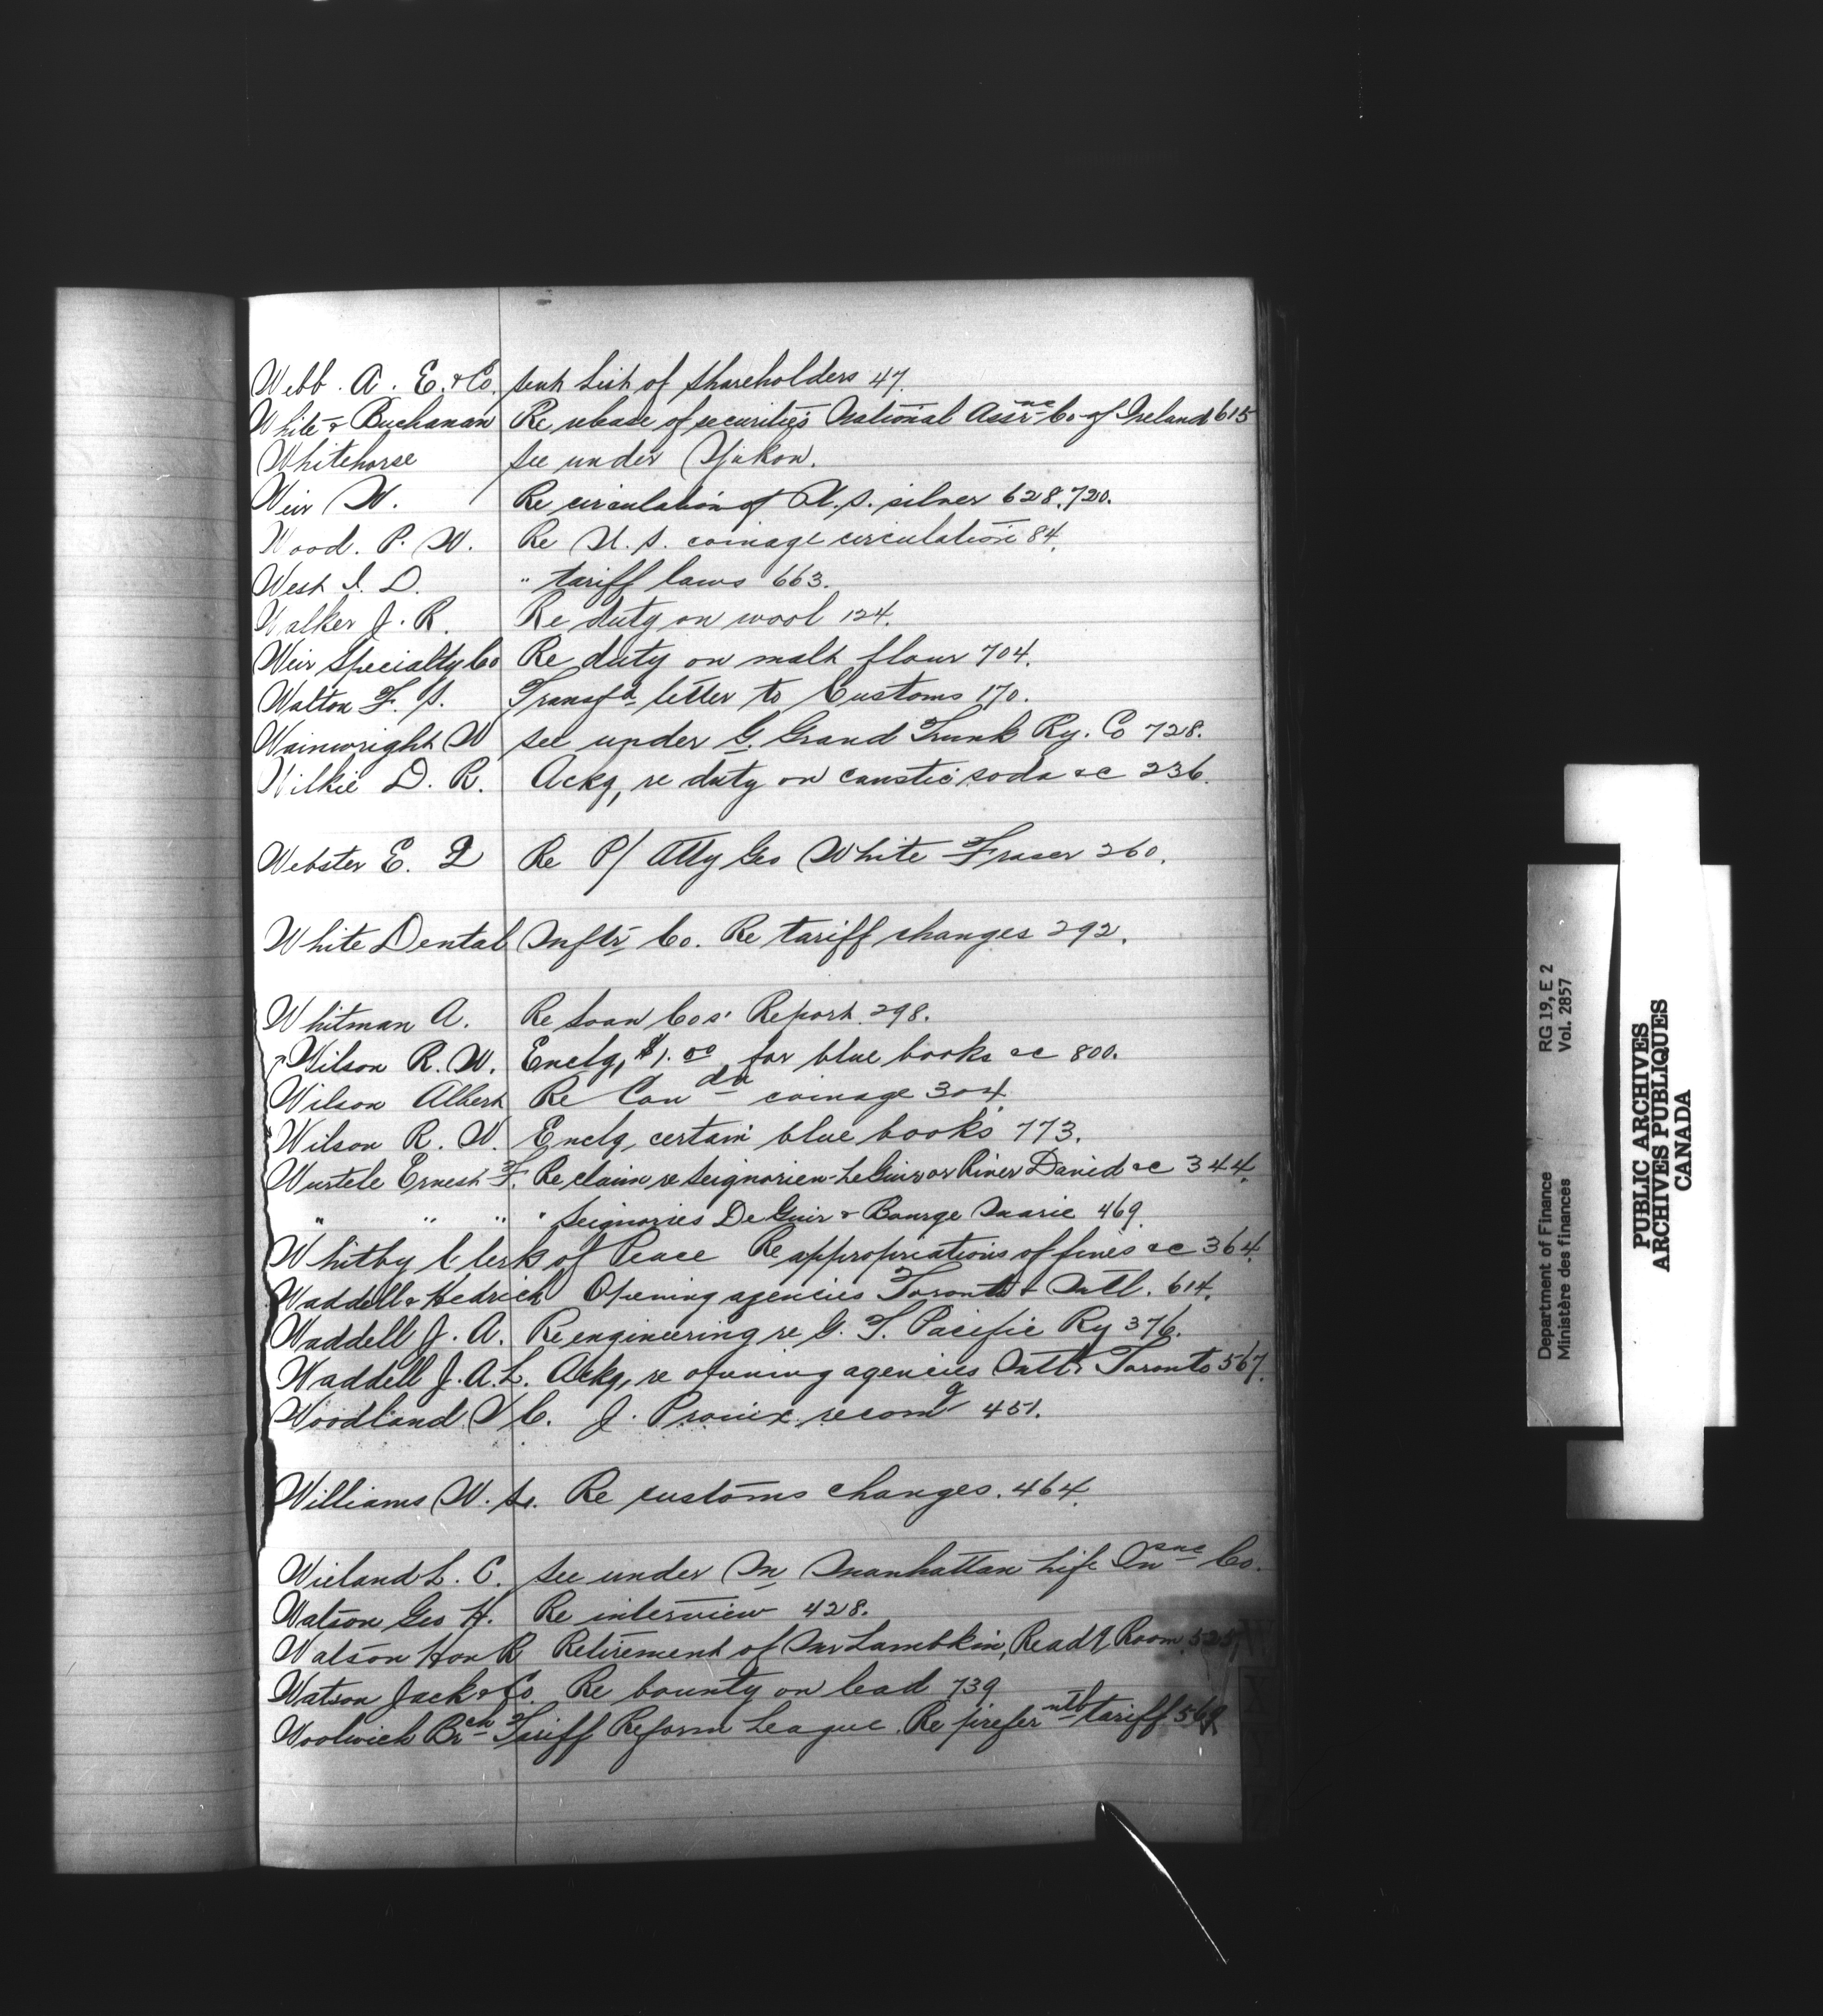 Webb. A. E. & Co. sent list of shareholders 47.
White & Buchanan Re release of securities National Assnce Co of Ireland 615
Whitehorse See under Yukon.
Weir W. Re circulation of U.S. silver 628, 720.
Wood. P. W. Re U.S. coinage circulation 84.
West I. D. " tariff laws 663.
Walker J. R. Re duty on wool 124.
Weir Specialty Co Re duty on malt flour 704.
Walton F. S. Transfd letter to Customs 170.
Wainwright W see under G. Grand Trunk Ry. Co 728.
Wilkie D. R. Ackg, re duty on caustic soda &c 236.
Webster E. Re P/ Atty Geo White Fraser 260.
White Dental Mnftr Co. Re tariff changes 292.
Whitman A. Re Loan Cos' Report. 298.
Wilson R. W. Enclg, $1.00 for blue books &c 800.
Wilson Albert Re Canda coinage 304.
Wilson R. W. Enclg, certain blue books 773.
Wurtele Ernest F. Re claim re Seignorien - DeGuir or River David &c 344.
" " " " Seignories De Guir & Bourge Marie 469.
Whitby Clerk of Peace Re appropriations of fines &c 364.
Waddell & Hedrick Opening agencies Toronto & Mtl. 614.
Waddell J. A. Re engineering re G. T. Pacific Ry 376.
Waddell J. A. L. Ackg, re opening agencies Mtl & Toronto 567.
Woodland C. J. Proux recomg 451.
Williams W. S. Re customs changes. 464.
Wieland L. C. See under M Manhattan Life Insnce Co.
Watson Geo H. Re interview 428.
Watson Hon R Retirement of Mr Lambkin, Readg Room 525
Watson Jack & Co. Re bounty on lead 739
Woolwich Brch Tariff Reform League. Re preferntl tariff 569
PUBLIC ARCHIVES
ARCHIVES PUBLIQUES
CANADA
Department of Finance RG 19, E 2
Ministère des finances Vol. 2857